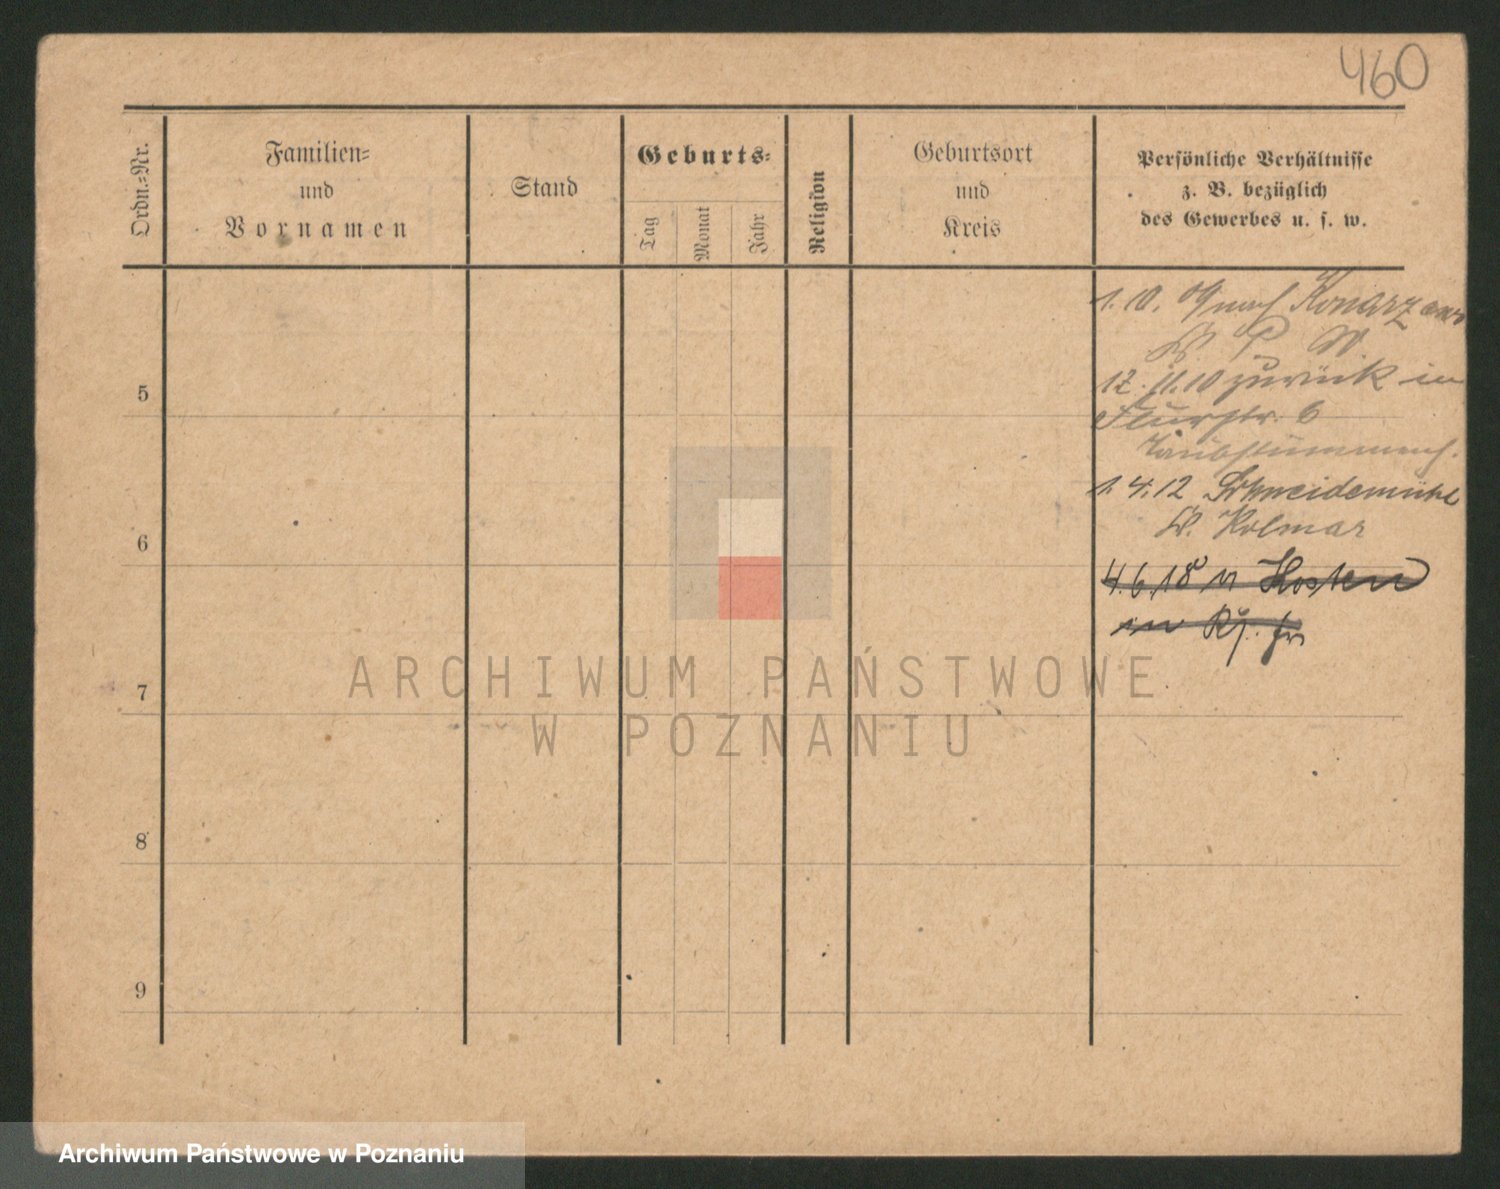 460
Ordn.=Nr.
Familien=
und
Vornamen
Stand
Geburts=
Tag
Monat
Jahr
Religion
Geburtsort
und
Kreis
Persönliche Verhältnisse
z. B. bezüglich
des Gewerbes u. s. w.
1. 10. 09 nach Konarzewo
Kr. P. W.
12. 11. 10 zurück in
5
Flurstr. 6
Taubstummen
1. 4. 12 Schneidemühl
Kr. Kolmar
6
4.6.18 n Kosten
in
7
8
9
ARCHIWUM PAŃSTWOWE
W POZNANIU
Archiwum Państwowe w Poznaniu